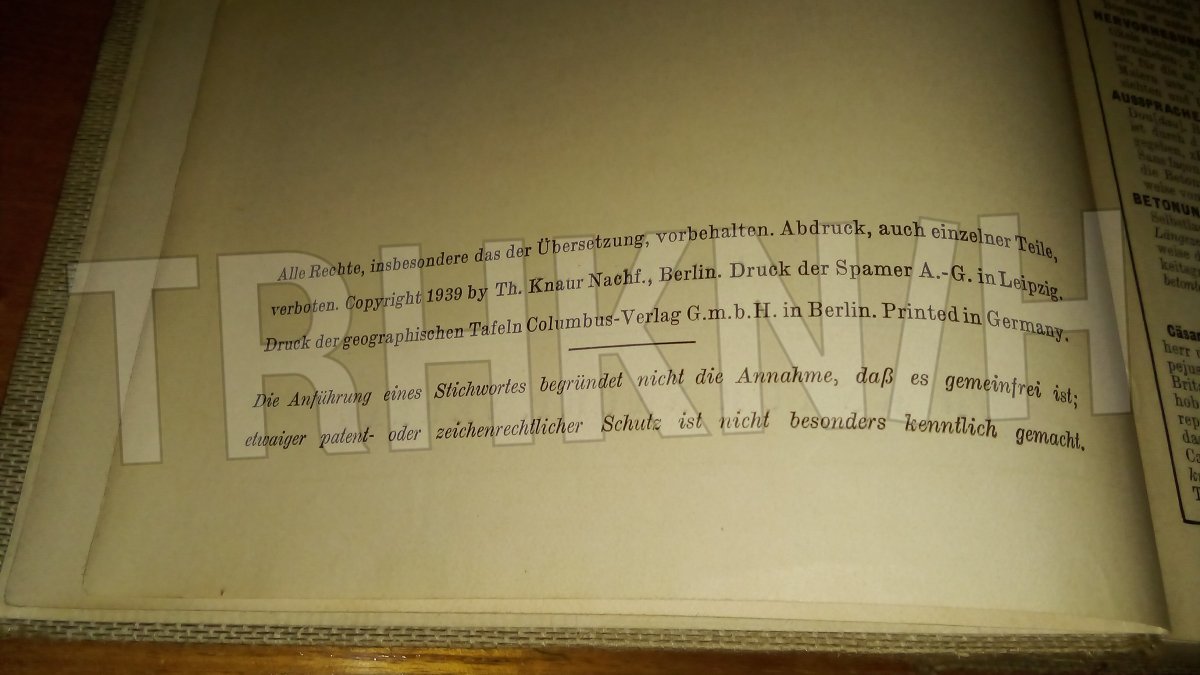 Alle Rechte, insbesondere das der Übersetzung, vorbehalten. Abdruck, auch einzelner Teile,
verboten. Copyright 1939 by Th. Knaur Nachf., Berlin. Druck der Spamer A.-G. in Leipzig.
Druck der geographischen Tafeln Columbus-Verlag G.m.b.H. in Berlin. Printed in Germany.
Die Anführung eines Stichwortes begründet nicht die Annahme, daß es gemeinfrei ist;
etwaiger patent- oder zeichenrechtlicher Schutz ist nicht besonders kenntlich gemacht.
TRHKN/H
HERVORHEBUNG
AUSSPRACHE
ist durch
gegeben,
die Beton
weise von
BETONUN
Selbstlau
Länge
weise d
keiten
betord
Cäsar
herr
pejus
Brit
hob
rep
da
Ca
k
T